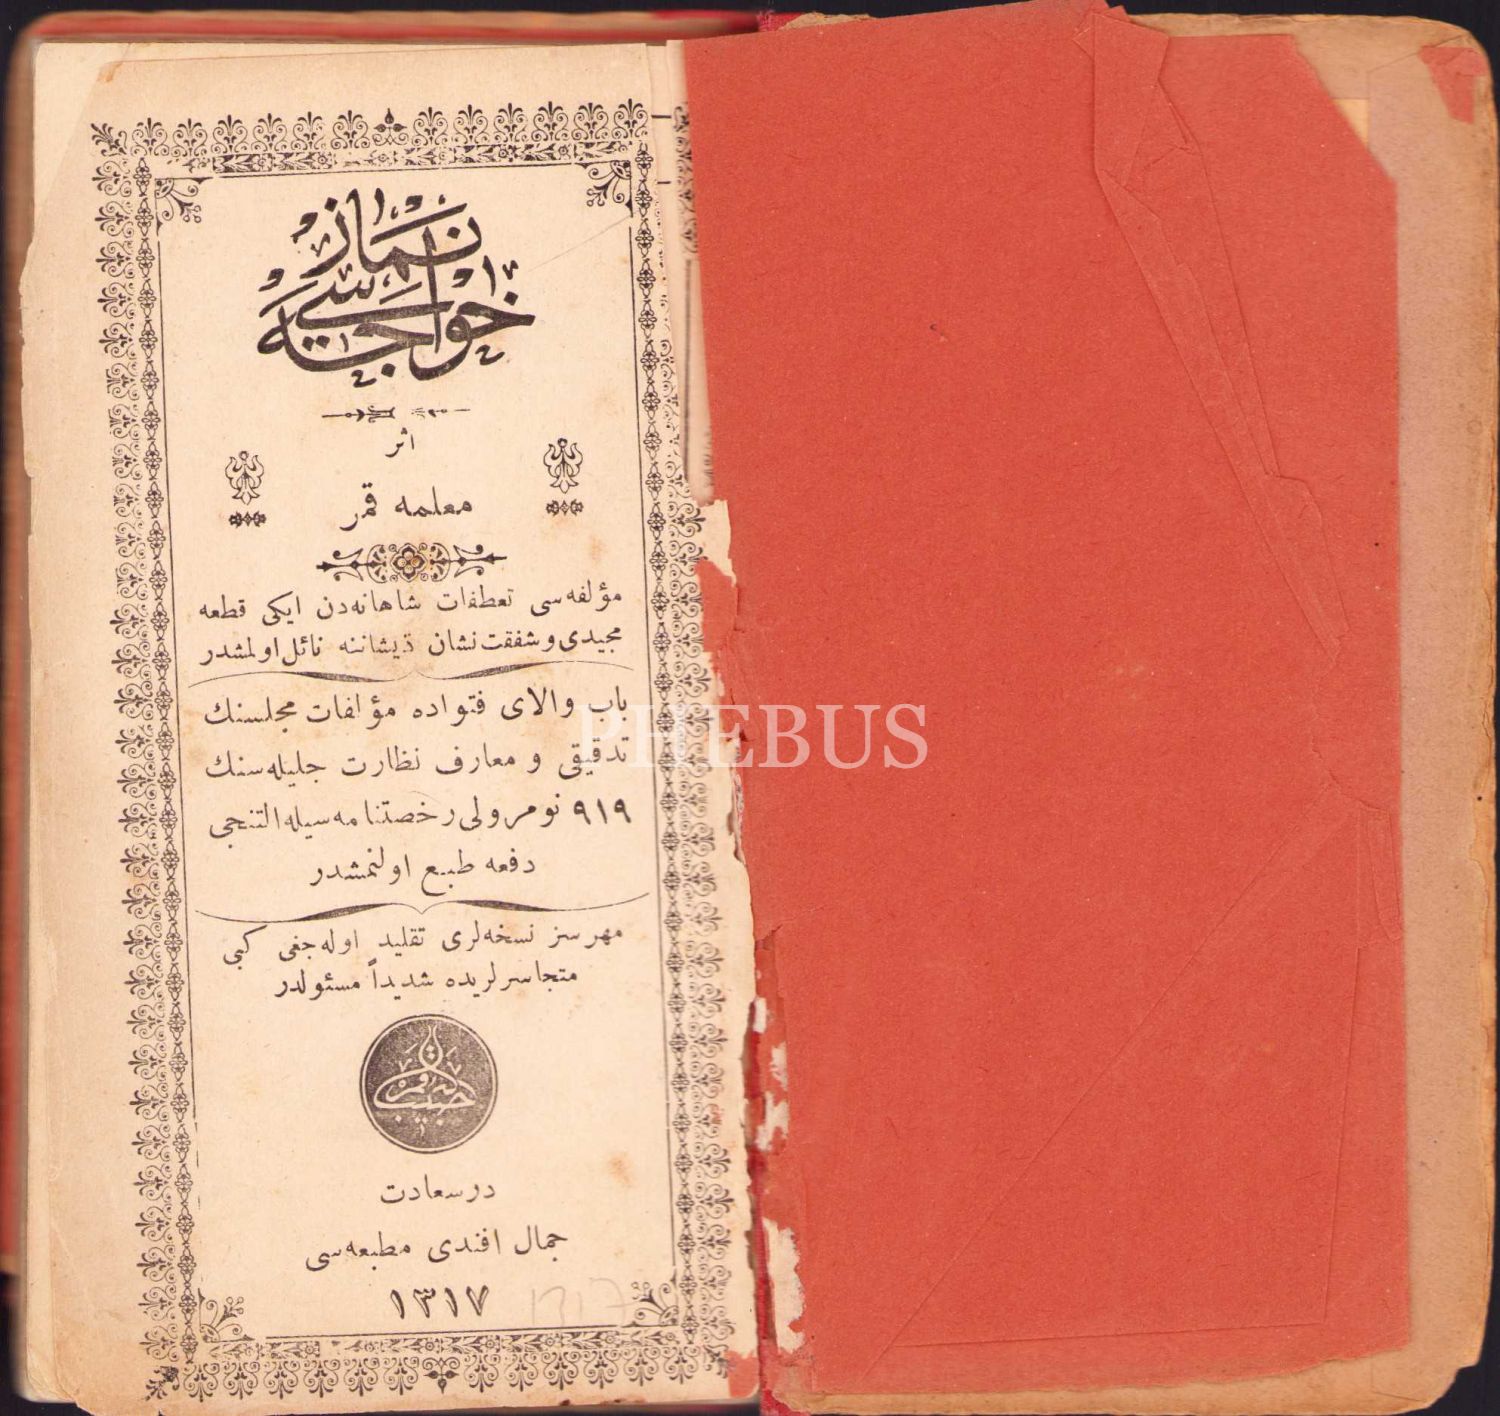 نماز
خواجه‌سی
اثر
معلمه قمر
مؤلفه‌سی تعطفات شاهانه‌دن ایکی قطعه
مجیدی و شفقت نشان ذیشاننه نائل اولمشدر
باب والای فتواده مؤلفات مجلسنك
تدقیقی و معارف نظارت جلیله‌سنك
٩١٩ نومرولی رخصتنامه‌سیله التنجی
دفعه طبع اولنمشدر
مهرسز نسخه‌لری تقلید اوله‌جغی کبی
متجاسرلریده شدیداً مسئولدر
درسعادت
جمال افندی مطبعه‌سی
١٣١٧
1317
PHEBUS